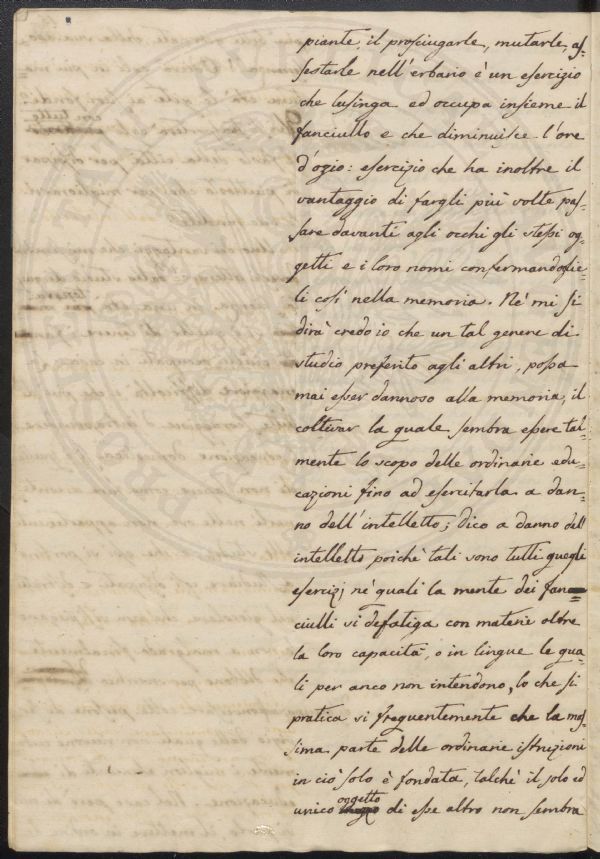 piante, il prosciugarle, mutarle, as-
sestarle nell'erbario è un esercizio
che lusinga ed occupa insieme il
fanciullo e che diminuisce l'ore
d'ozio: esercizio che ha inoltre il
vantaggio di fargli più volte pas-
sare davanti agli occhi gli stessi og-
getti e i loro nomi confermandoglie-
li così nella memoria. Nè mi si
dirà credo io che un tal genere di
studio preferito agli altri, possa
mai esser dannoso alla memoria, il
coltivar la quale sembra essere tal-
mente lo scopo delle ordinarie edu-
cazioni fino ad esercitarla a dan-
no dell'intelletto; dico a danno dell'
intelletto poichè tali sono tutti quegli
esercizj nè quali la mente dei fan-
ciulli si defatiga con materie oltre
la loro capacità, o in lingue le qua-
li per anco non intendono, lo che si
pratica sì frequentemente che la mas-
sima parte delle ordinarie istruzioni
in ciò solo è fondata, talchè il solo ed
oggetto
unico di esse altro non sembra